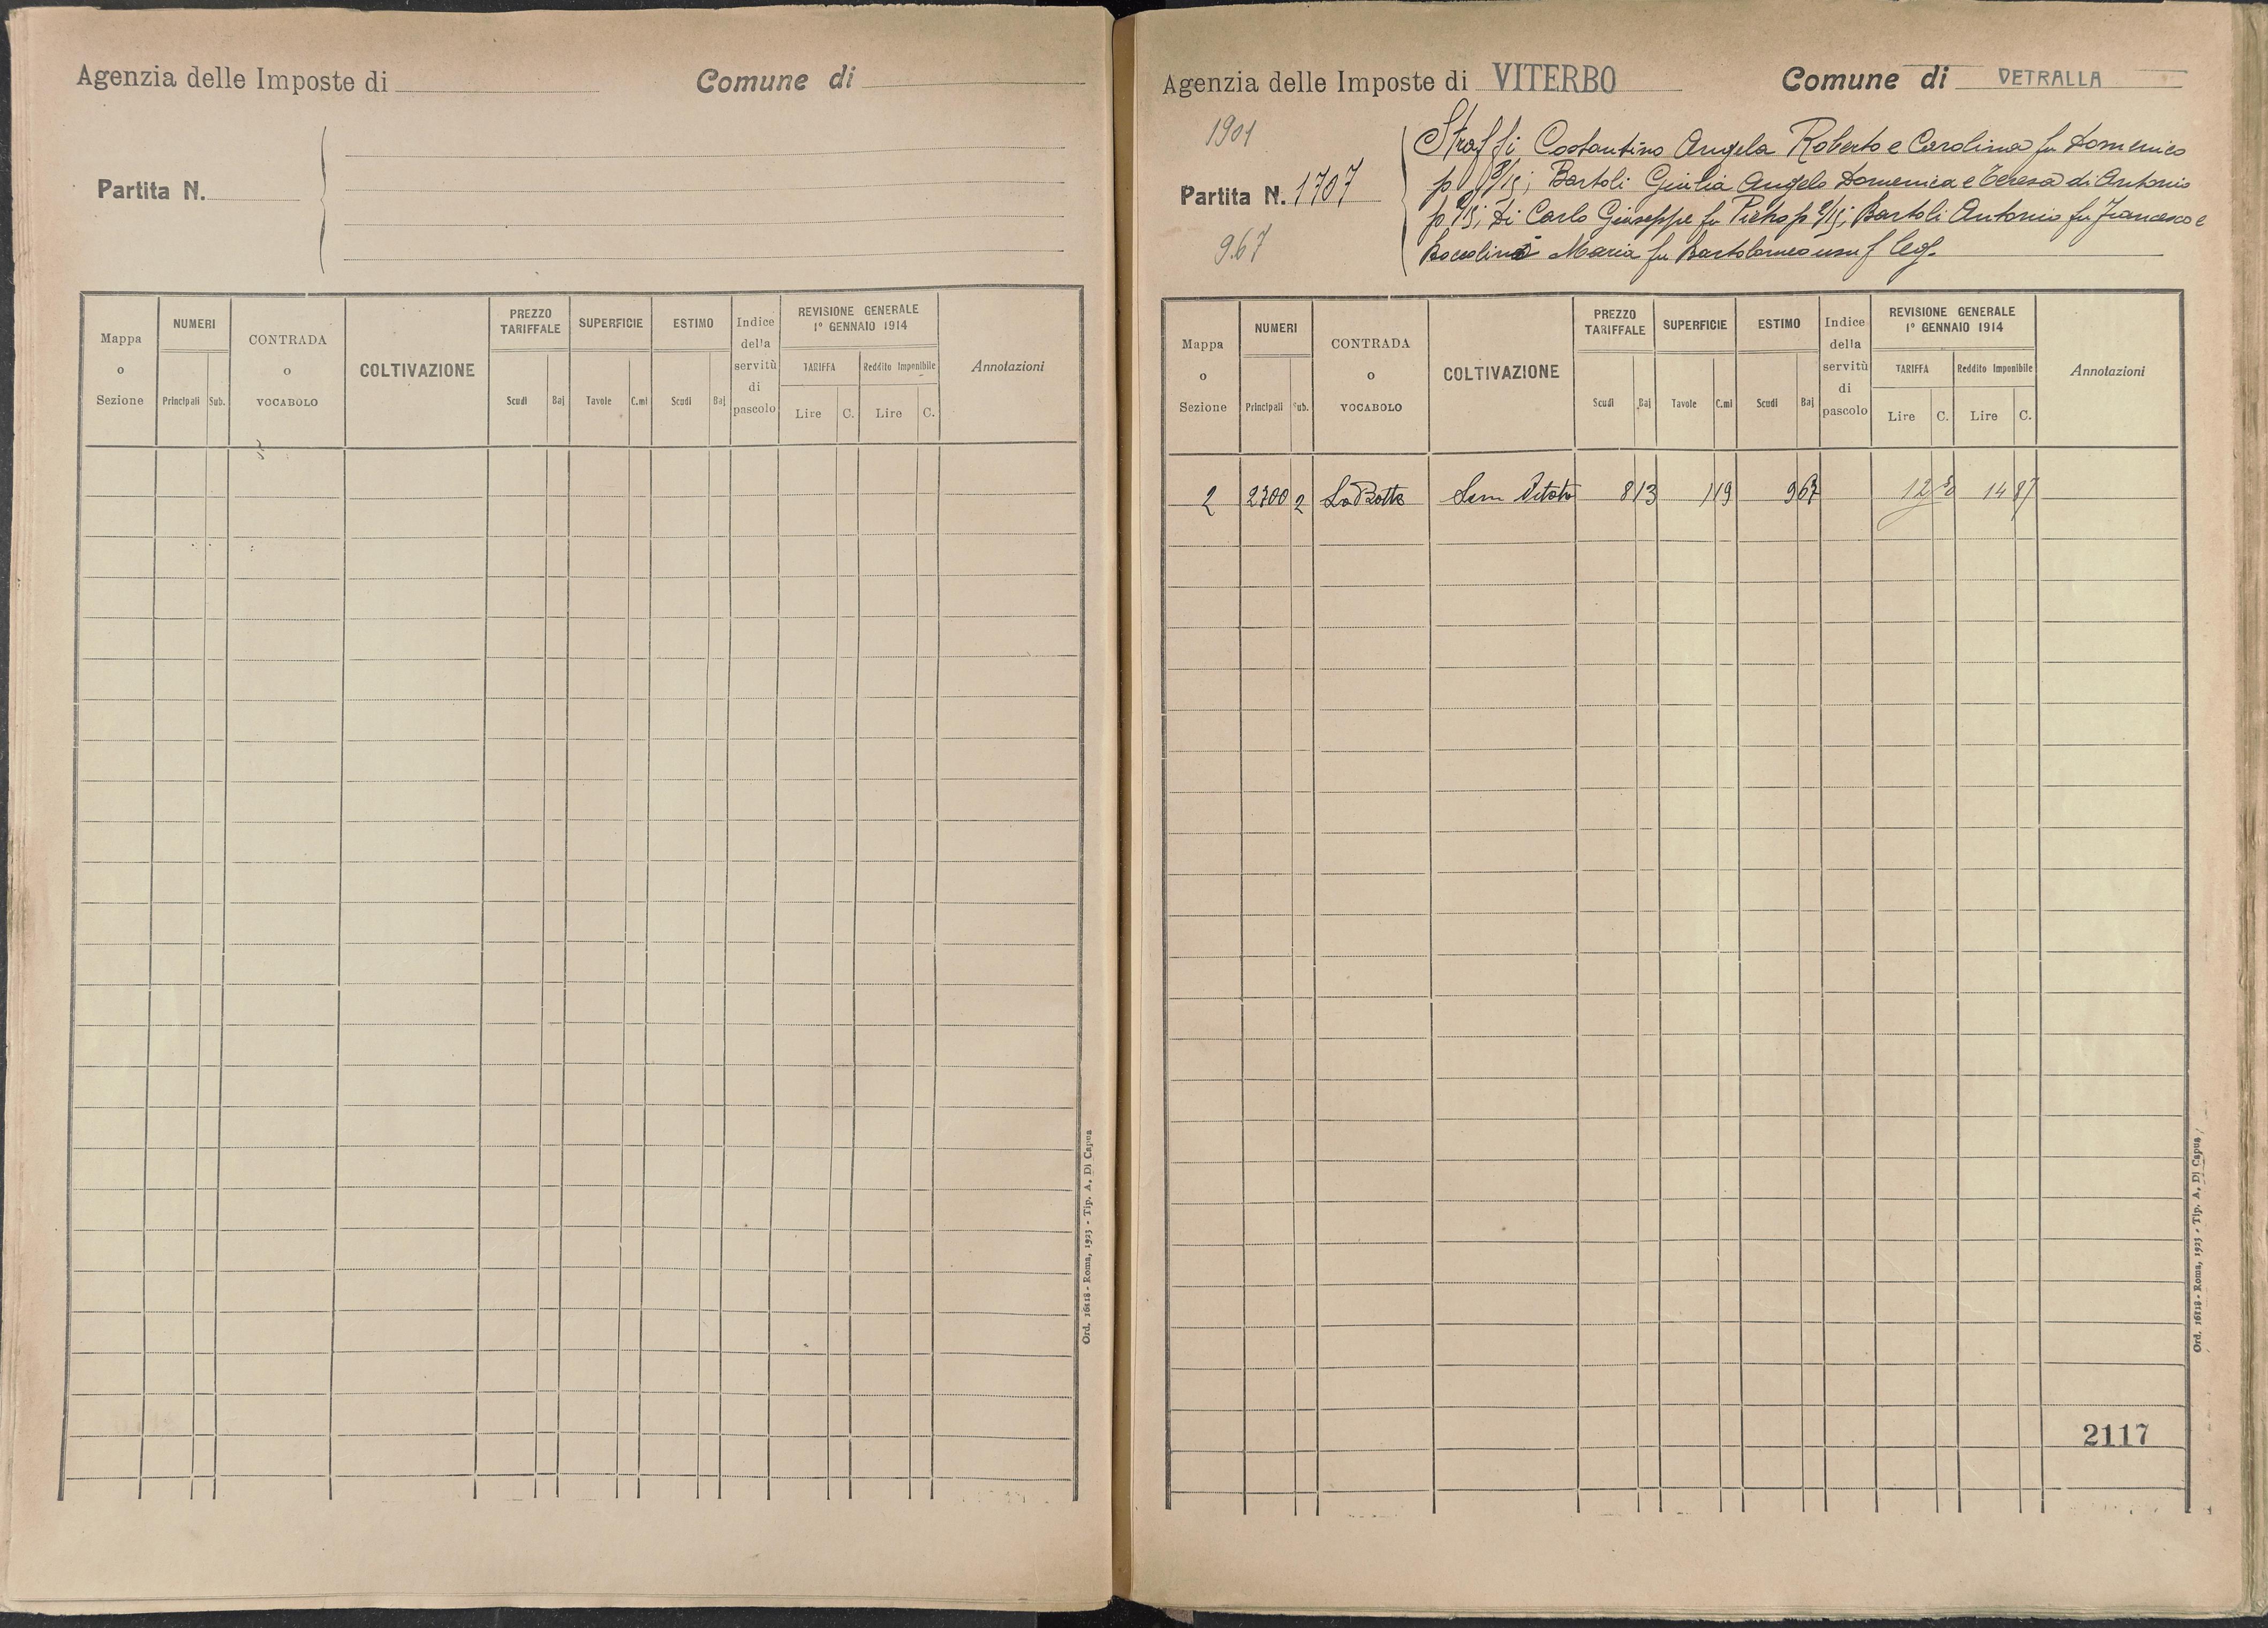 Agenzia delle Imposte di
Comune di
Partita N.
Mappa o Sezione
NUMERI
Principali
Sub.
CONTRADA o VOCABOLO
COLTIVAZIONE
PREZZO TARIFFALE
Scudi
Baj
SUPERFICIE
Tavole
C.mi
ESTIMO
Scudi
Baj
Indice della servitù di pascolo
REVISIONE GENERALE
1º GENNAIO 1914
TARIFFA
Lire
C.
Reddito Imponibile
Lire
C.
Annotazioni
Ord. 16118 - Roma, 1923 - Tip. A. Di Capua
Agenzia delle Imposte di VITERBO
Comune di VETRALLA
1901
Partita N. 1707
967
Straffi Costantino Angela Roberto e Carolina fu Domenico
p 8/15; Bartoli Giulia Angelo Domenica e Teresa di Antonio
p /15; Di Carlo Giuseppe fu Pietro p /15; Bartoli Antonio fu Francesco e
Maria fu Bartolomeo usuf leg.
Mappa o Sezione
NUMERI
Principali
Sub.
CONTRADA o VOCABOLO
COLTIVAZIONE
PREZZO TARIFFALE
Scudi
Baj
SUPERFICIE
Tavole
C.mi
ESTIMO
Scudi
Baj
Indice della servitù di pascolo
REVISIONE GENERALE
1º GENNAIO 1914
TARIFFA
Lire
C.
Reddito Imponibile
Lire
C.
Annotazioni
2 2700 2 La Botte Sem Vitato 8 13 1 19 9 67 12 50 14 87
2117
Ord. 16118 - Roma, 1923 - Tip. A. Di Capua